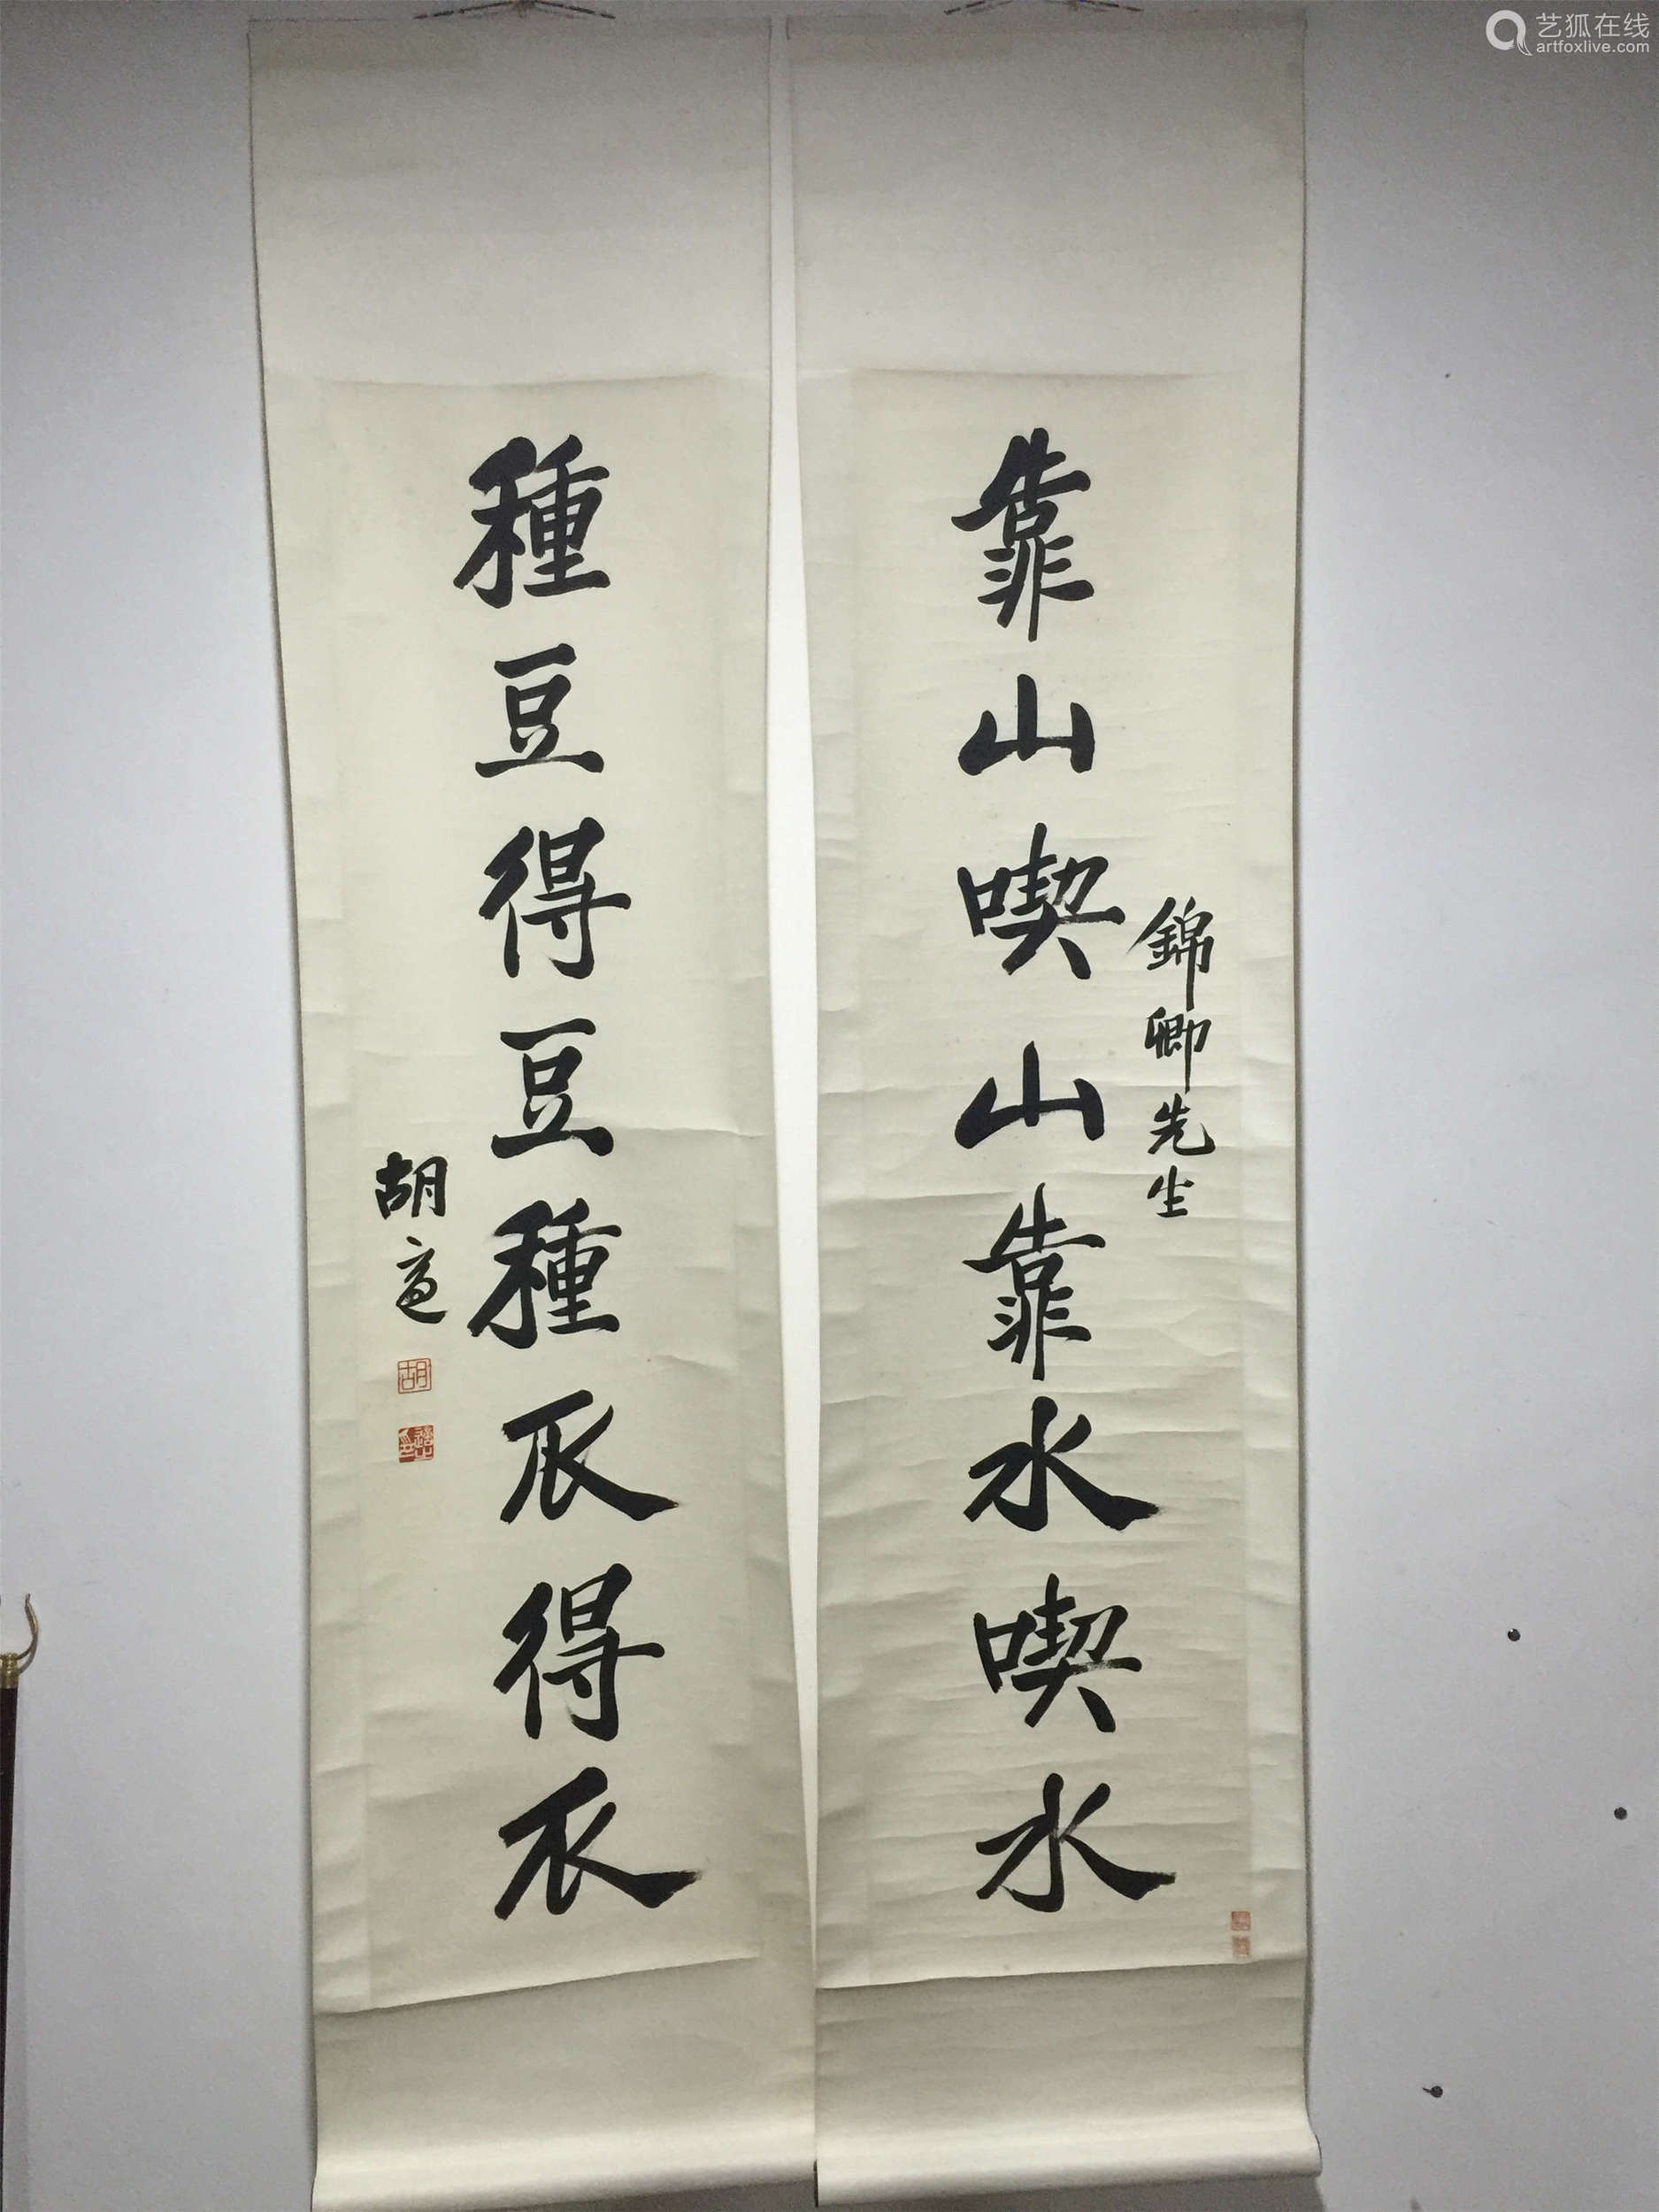 艺狐在线
artfoxlive.com
靠山喫山靠水喫水
錦卿先生
種豆得豆種瓜得瓜
胡適
胡